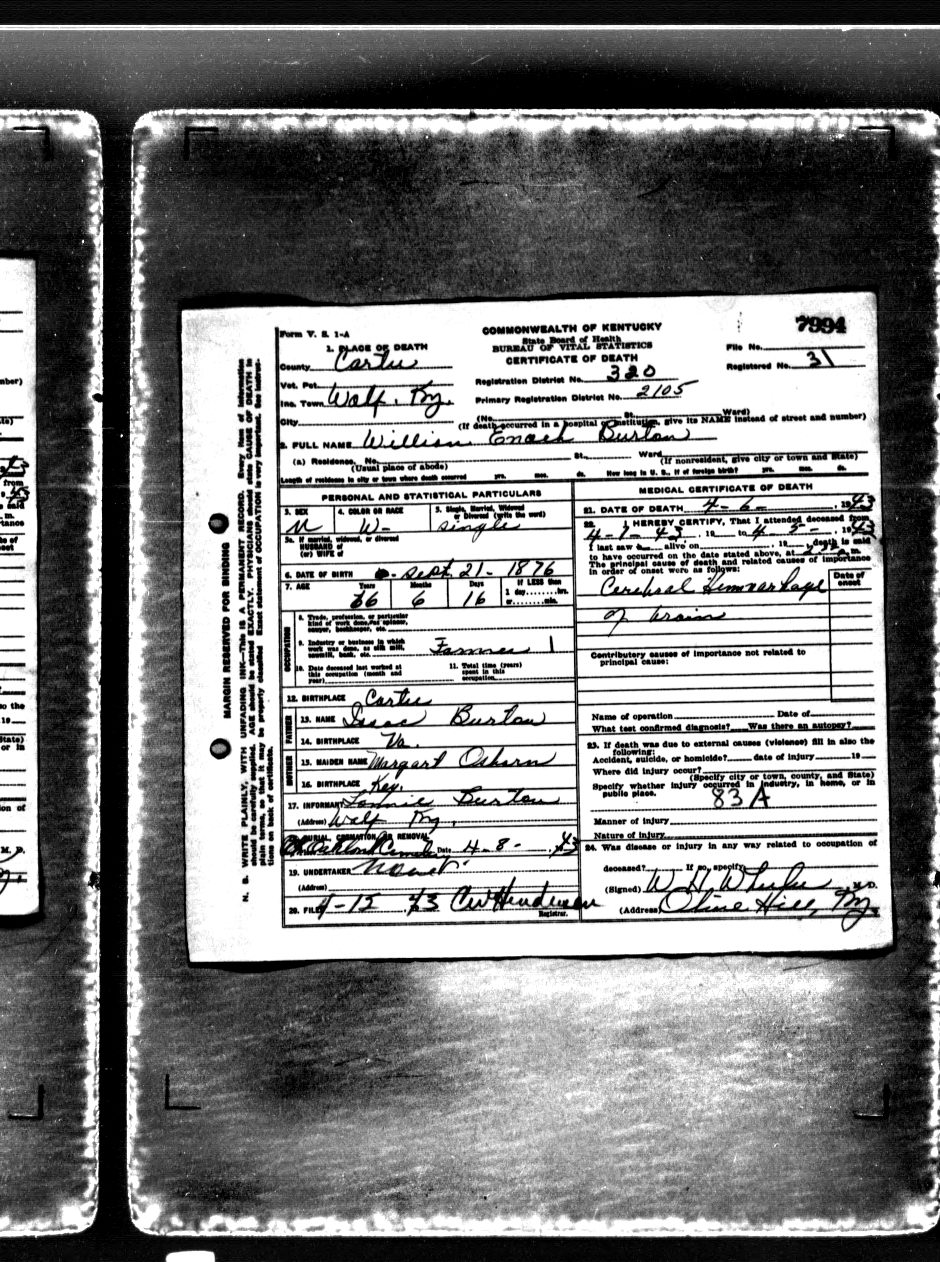 Form V. S. 1-A
COMMONWEALTH OF KENTUCKY
State Board of Health
BUREAU OF VITAL STATISTICS
CERTIFICATE OF DEATH
7994
File No.
Registered No. 31
1. PLACE OF DEATH
County Carter
Vot. Pct.
Inc. Town Wolf, Ky.
City
Registration District No. 320
Primary Registration District No. 2105
(No. St. Ward)
(If death occurred in a hospital or institution, give its NAME instead of street and number)
2. FULL NAME William Enoch Burton
(a) Residence. No. St., Ward
(Usual place of abode) (If nonresident, give city or town and State)
Length of residence in city or town where death occurred yrs. mos. ds. How long in U. S., if of foreign birth? yrs. mos. ds.
PERSONAL AND STATISTICAL PARTICULARS
3. SEX 4. COLOR OR RACE 5. Single, Married, Widowed
or Divorced (write the word)
M W- single
5a. If married, widowed, or divorced
HUSBAND of
(or) WIFE of
6. DATE OF BIRTH Sept. 21 - 1876
7. AGE Years Months Days If LESS than
1 day........hrs.
or........min.
66 6 16
OCCUPATION
8. Trade, profession, or particular
kind of work done, as spinner,
sawyer, bookkeeper, etc.
9. Industry or business in which
work was done, as silk mill,
sawmill, bank, etc. Farmer 1
10. Date deceased last worked at
this occupation (month and
year)
11. Total time (years)
spent in this
occupation
12. BIRTHPLACE Carter
FATHER
13. NAME Isaac Burton
14. BIRTHPLACE Va.
MOTHER
15. MAIDEN NAME Margart Osborn
16. BIRTHPLACE Key.
17. INFORMANT Burton
(Address) Wolf Ky.
18. BURIAL, CREMATION OR REMOVAL
Date 4-8- , 43
19. UNDERTAKER
(Address)
20. FILED 4-12 , 43 CW Henderson
Registrar.
MEDICAL CERTIFICATE OF DEATH
21. DATE OF DEATH 4-6- , 1943
22. I HEREBY CERTIFY, That I attended deceased from
4-1-43 , 19 , to 4-5- , 1943
I last saw h alive on , 19 , death is said
to have occurred on the date stated above, at m.
The principal cause of death and related causes of importance
in order of onset were as follows:
Date of
onset
Cerebral Hemmarhage
of brain
Contributory causes of importance not related to
principal cause:
Name of operation Date of
What test confirmed diagnosis? Was there an autopsy?
23. If death was due to external causes (violence) fill in also the
following:
Accident, suicide, or homicide? date of injury 19
Where did injury occur?
(Specify city or town, county, and State)
Specify whether injury occurred in industry, in home, or in
public place.
83A
Manner of injury
Nature of injury
24. Was disease or injury in any way related to occupation of
deceased? If so, specify
(Signed) W H , M. D.
(Address) Olive Hill, Ky.
MARGIN RESERVED FOR BINDING
N. B. WRITE PLAINLY, WITH UNFADING INK—THIS IS A PERMANENT RECORD. Every item of information
should be carefully supplied. AGE should be stated EXACTLY. PHYSICIANS should state CAUSE OF DEATH in
plain terms, so that it may be properly classified. Exact statement of OCCUPATION is very important. See instruc-
tions on back of certificate.